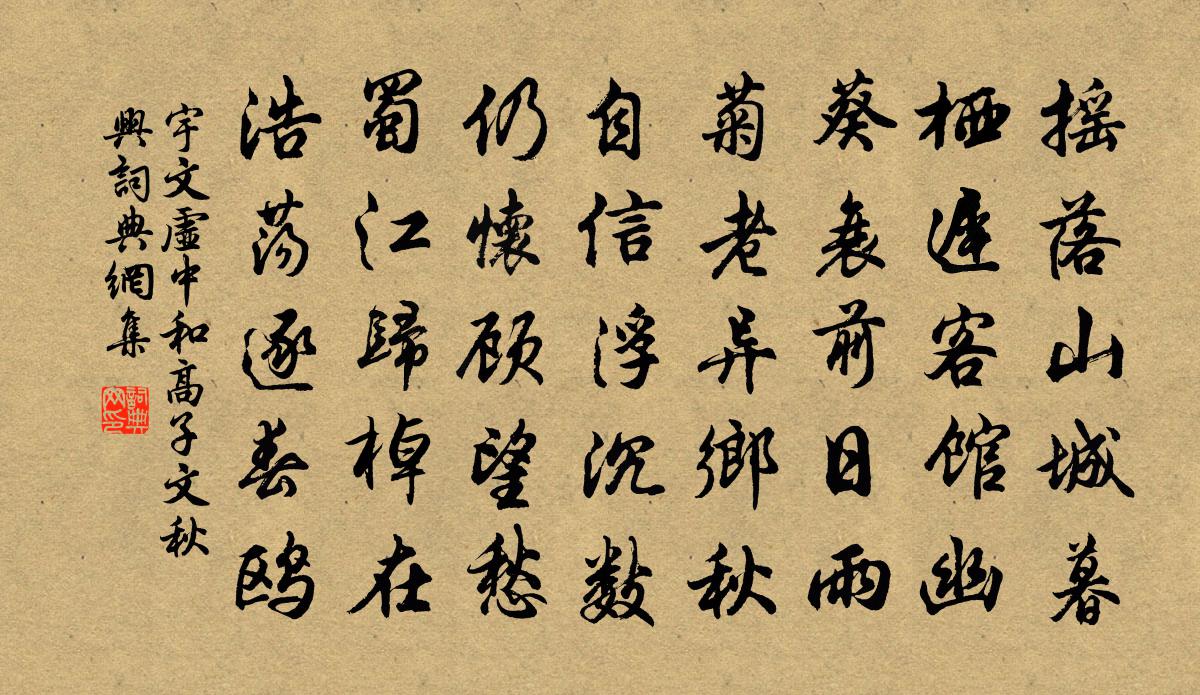 摇落山城暮
栖遲客館幽
葵衰前日雨
菊老异鄉秋
自信浮沉數
仍懷顾望愁
蜀江歸棹在
浩荡逐春鸥
宇文虛中和高子文秋
興詞典網集
詞典網印